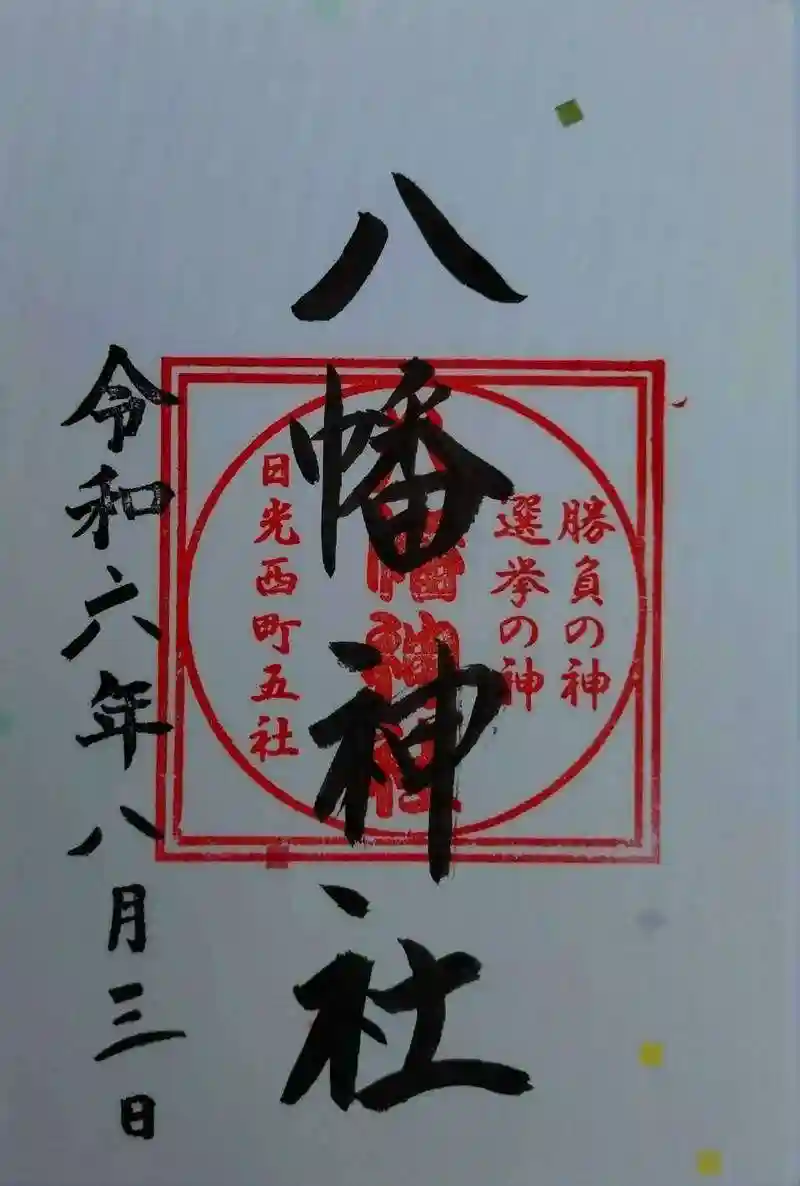 勝負の神
選挙の神
八幡神社
八幡神社
日光西町五社
令和六年八月三日